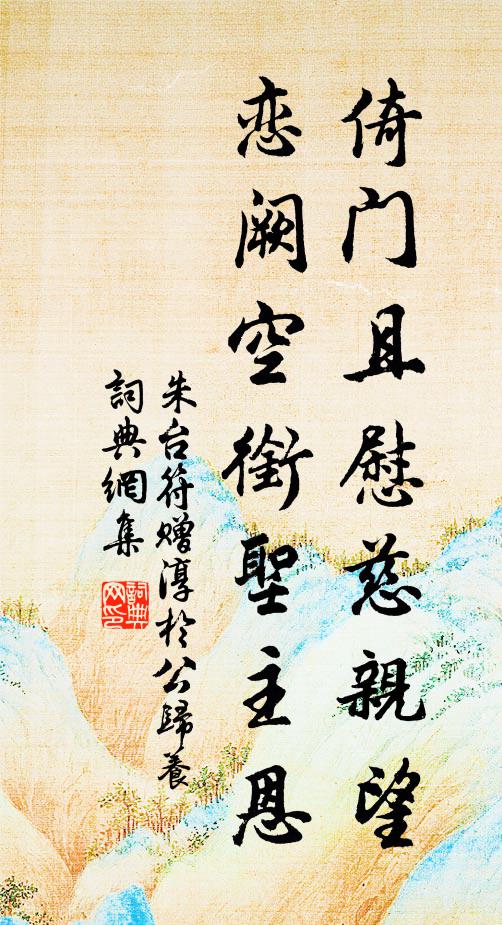 倚门且慰慈親望
恋阙空銜聖主恩
朱台符赠淳於公歸養
詞典網集
詞典网印